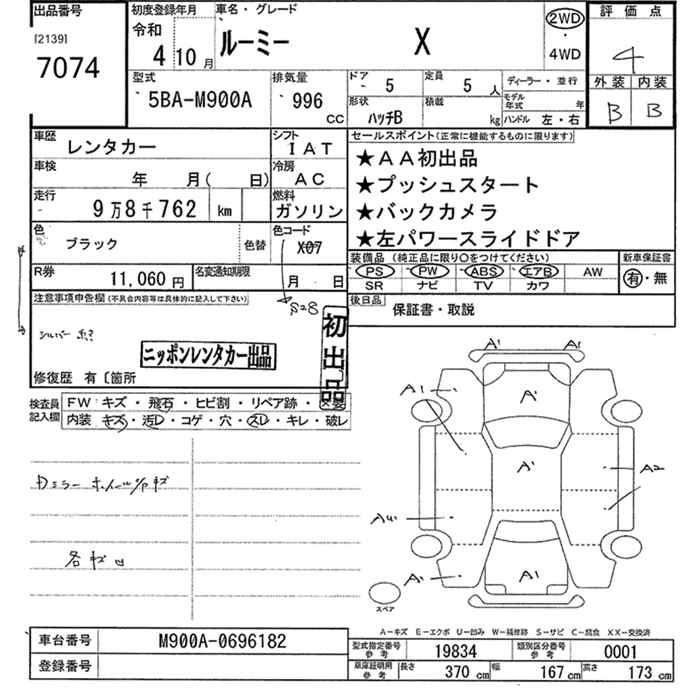 出品番号 初度登録年月 車名・グレード 評価点
[2139] 令和 ルーミー X 2WD
7074 4 10月 ・ 4
4WD
外装 内装
型式 排気量 ドア 5 定員 5人 ディーラー・並行 B B
5BA-M900A 996 CC 形状 ハッチB 積載 kg モデル年式 年
ハンドル 左・右
車歴 レンタカー シフト IAT セールスポイント(正常に機能するものに限ります)
車検 年 月( 日) 冷房 AC ★AA初出品
走行 9万8千762 km 燃料 ガソリン ★プッシュスタート
★バックカメラ
色 ブラック 色替 色コード X07 ★左パワースライドドア
装備品(純正品に限り○をつけてください) 新車保証書
R券 11,060円 名変通期限 月 日 PS PW ABS エアB AW 有・無
SR ナビ TV カワ
注意事項申告欄(不具合内容等は具体的に記入して下さい) S28 後日品 保証書・取説
シルバー
初出品
ニッポンレンタカー出品
修復歴 有〔箇所
検査員記入欄 FW キズ・飛石・ヒビ割・リペア跡・
内装 キズ・汚レ・コゲ・穴・スレ・キレ・破レ
A1 A1
A1 A1
A1 A2
A1
A1 A1
スペア
A-キズ E-エクボ U-凹み W-補修跡 S-サビ C-腐食 XX-交換済
車台番号 M900A-0696182 型式指定番号 参考 19834 類別区分番号 参考 0001
登録番号 車庫証明用 参考 長さ 370 cm 幅 167 cm 高さ 173 cm